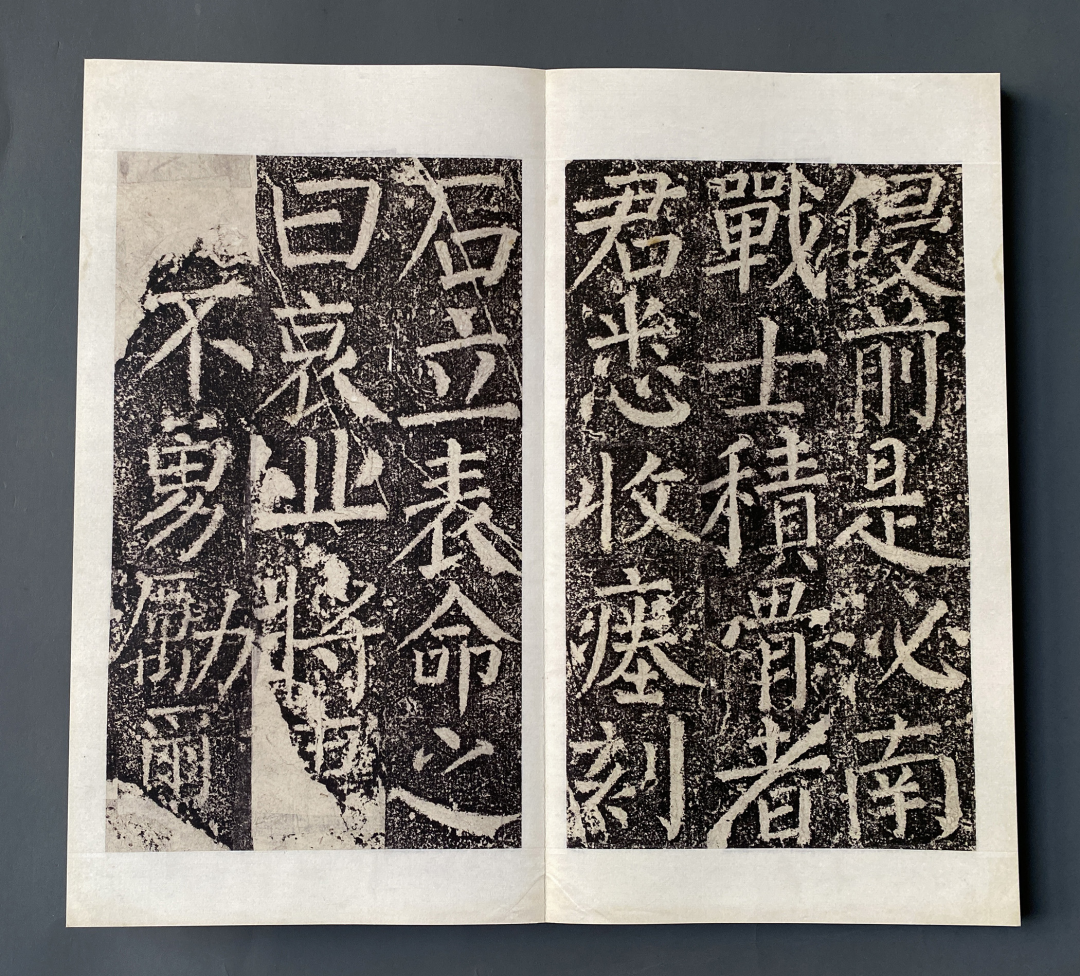 侵前是泌南
戰士積骨者
君悉收瘞刻
石立表命之
曰哀丘將
不勇勵